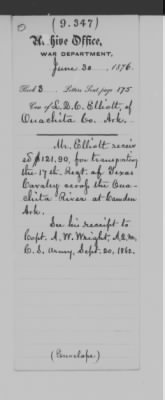 (9.347)
Archive Office,
WAR DEPARTMENT,
June 30, 1876.
Rec'd 3 Letters Sent, page 175
Case of L. D. C. Elliott, of
Ouachita Co. Ark.
Mr. Elliott receiv
ed $121.90, for transporting
the 17th Regt. of Texas
Cavalry across the Oua-
chita River at Camden
Ark.
See his receipt to
Capt. A. W. Wright, A.Q.M.
C. S. Army, Sept. 20, 1862.
(Envelope)